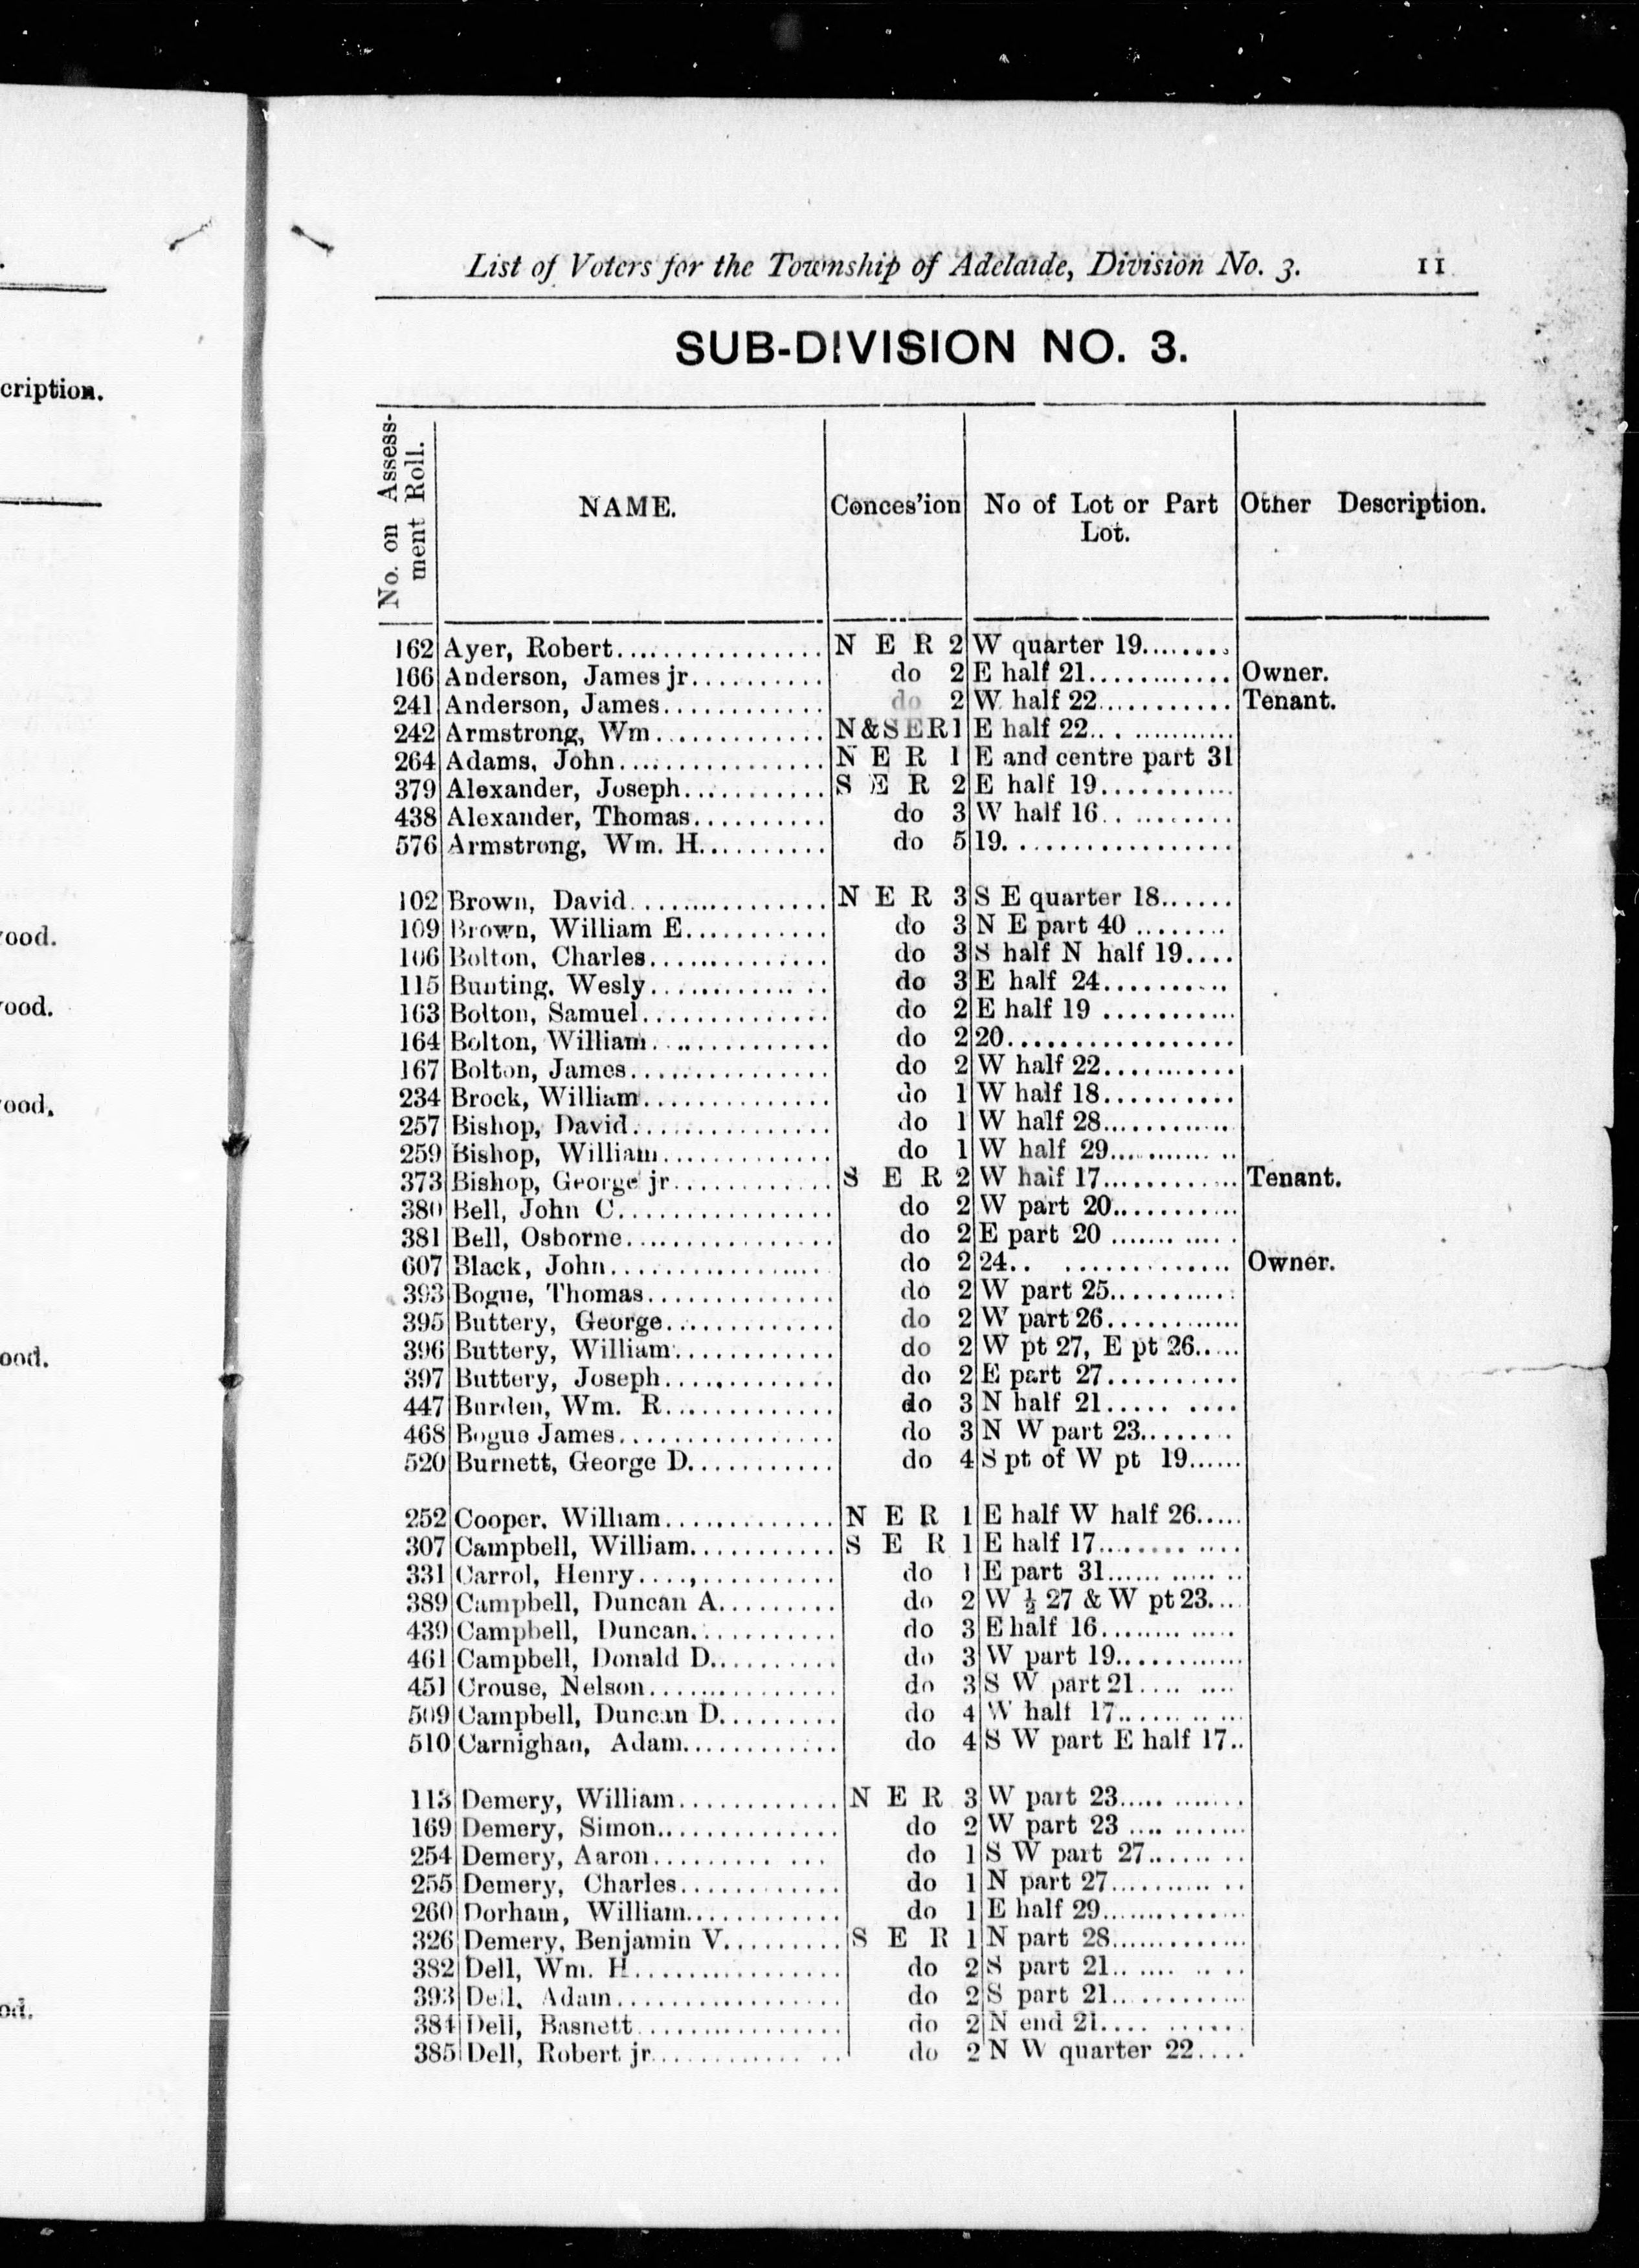 cription.
ood.
ood.
ood.
ood.
od.
List of Voters for the Township of Adelaide, Division No. 3. 11
SUB-DIVISION NO. 3.
No. on Assess-
ment Roll.
NAME.
Conces'ion
No of Lot or Part
Lot.
Other Description.
162 Ayer, Robert................. N E R 2 W quarter 19........
166 Anderson, James jr.......... do 2 E half 21............ Owner.
241 Anderson, James............. do 2 W half 22........... Tenant.
242 Armstrong, Wm............. N&SER1 E half 22.. ...........
264 Adams, John................ N E R 1 E and centre part 31
379 Alexander, Joseph........... S E R 2 E half 19...........
438 Alexander, Thomas.......... do 3 W half 16.. .........
576 Armstrong, Wm. H.......... do 5 19. ................
102 Brown, David............... N E R 3 S E quarter 18......
109 Brown, William E........... do 3 N E part 40 ........
106 Bolton, Charles.............. do 3 S half N half 19....
115 Bunting, Wesly............. . do 3 E half 24...........
163 Bolton, Samuel.............. do 2 E half 19 ...........
164 Bolton, William. .............. do 2 20.................
167 Bolton, James............... do 2 W half 22...........
234 Brock, William.............. do 1 W half 18..........
257 Bishop, David............... do 1 W half 28............
259 Bishop, William............. do 1 W half 29.......... ..
373 Bishop, George jr............. S E R 2 W half 17............ Tenant.
380 Bell, John C................ do 2 W part 20...........
381 Bell, Osborne................ do 2 E part 20 ....... .....
607 Black, John................. do 2 24.. ............. Owner.
393 Bogue, Thomas.............. do 2 W part 25..........
395 Buttery, George............. do 2 W part 26............
396 Buttery, William............ do 2 W pt 27, E pt 26.....
397 Buttery, Joseph............. do 2 E part 27..........
447 Burden, Wm. R............. do 3 N half 21..... ....
468 Bogue James................ do 3 N W part 23........
520 Burnett, George D........... do 4 S pt of W pt 19......
252 Cooper, William............. N E R 1 E half W half 26.....
307 Campbell, William........... S E R 1 E half 17......... ....
331 Carrol, Henry....,.......... do 1 E part 31...... ..... ..
389 Campbell, Duncan A......... do 2 W ½ 27 & W pt 23....
439 Campbell, Duncan........... do 3 E half 16........ .....
461 Campbell, Donald D.......... do 3 W part 19............
451 Crouse, Nelson............... do 3 S W part 21.... ....
509 Campbell, Duncan D......... do 4 W half 17...... .. ...
510 Carnighan, Adam............ do 4 S W part E half 17..
113 Demery, William............ N E R 3 W part 23..... .......
169 Demery, Simon.............. do 2 W part 23 .... .......
254 Demery, Aaron.......... ... do 1 S W part 27...... ..
255 Demery, Charles............ do 1 N part 27.......... ..
260 Dorham, William............ do 1 E half 29..............
326 Demery, Benjamin V......... S E R 1 N part 28.............
382 Dell, Wm. H................ do 2 S part 21.. .... .. ..
393 Dell, Adam................. do 2 S part 21.. ..........
384 Dell, Basnett................ do 2 N end 21.... ......
385 Dell, Robert jr............. .. do 2 N W quarter 22....